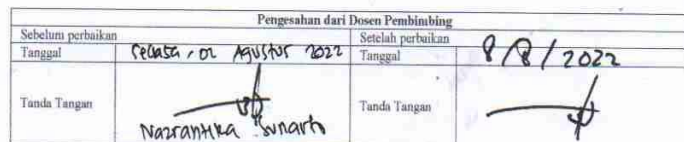 Pengesahan dari Dosen Pembimbing
Sebelum perbaikan Setelah perbaikan
Tanggal Selasa, 02 Agustus 2022 Tanggal 8/8/2022
Tanda Tangan Tanda Tangan
Nazrantika Sunarto